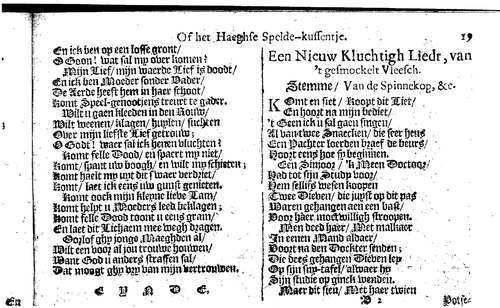 Of het Haeghse Spelde-kussentje. 19
En ick ben op een losse gront/
O Soon! wat sal my over komen?
Mijn Lief/ mijn waerde Lief is doodt/
En ick ben Moeder sonder Vader/
De Aerde heeft hem in haer schoot/
Komt Speel-genootjens treurt te gader.
Wilt u gaen kleeden in den Rouw/
Wilt weenen/ klagen/ huylen/ suchten
Over mijn liefste Lief getrouw;
O Godt! waer sal ick henen vluchten?
Komt felle Dood/ en spaert my niet/
Komt/ spant uw boogh/ en wilt my schieten;
Komt haelt my uyt dit swaer verdriet/
Komt/ laet ick eens uw gunst genieten.
Komt oock mijn kleyne lieve Lam/
Komt helpt u Moeders leed beklagen;
Komt felle Dood toont u eens gram/
En laet dit Lichaem mee wegh dragen.
Oorlof ghy jonge Maeghden al/
Wilt een voor al jou trouwe houwen/
Want God u anders straffen sal/
Dat moogt ghy vry van mijn vertrouwen.
E Y N D E.
En
Een Nieuw Kluchtigh Liedt, van
't gesmockelt Vleesch.
Stemme/ Van de Spinnekop, &c.
KOmt en siet/ Koopt dit Liet/
En hoort na mijn bediet/
't Geen ick u sal gaen singen/
Al van twee Snaecken/ die seer hens
Een Pachter loerden braef de beurs/
Hoort eens hoe sy beginnen.
Een Sinjoor/ 'k Meen Doctoor/
Had tot sijn Study voor/
Hem selfs wesen koopen
Twee Dieven/ die juyst op dit pas
Waren gehangen aen een bast/
Voor haer moetwilligh stroopen.
Men deed haer/ Met malkaer
In eenen Mand aldaer/
Voort na den Dockter senden;
Die dees gehangen Dieven lep
Op sijn snp-tafel/ alwaer hy
Sijn studie op ginck wenden.
Maer dit sien/ Met haer twien
B 2 Potse-